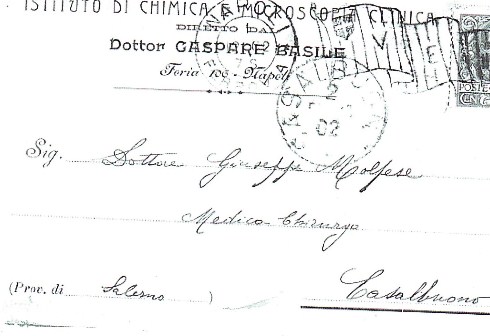 ISTITUTO DI CHIMICA E MICROSCOPIA CLINICA
DIRETTO DAL
Dottor GASPARE BASILE
Foria 106 - Napoli
NAPOLI
CASALBUONO
02
POSTE
Sig. Dottore Giuseppe Molfese
Medico Chirurgo
Casalbuono
(Prov. di Salerno )